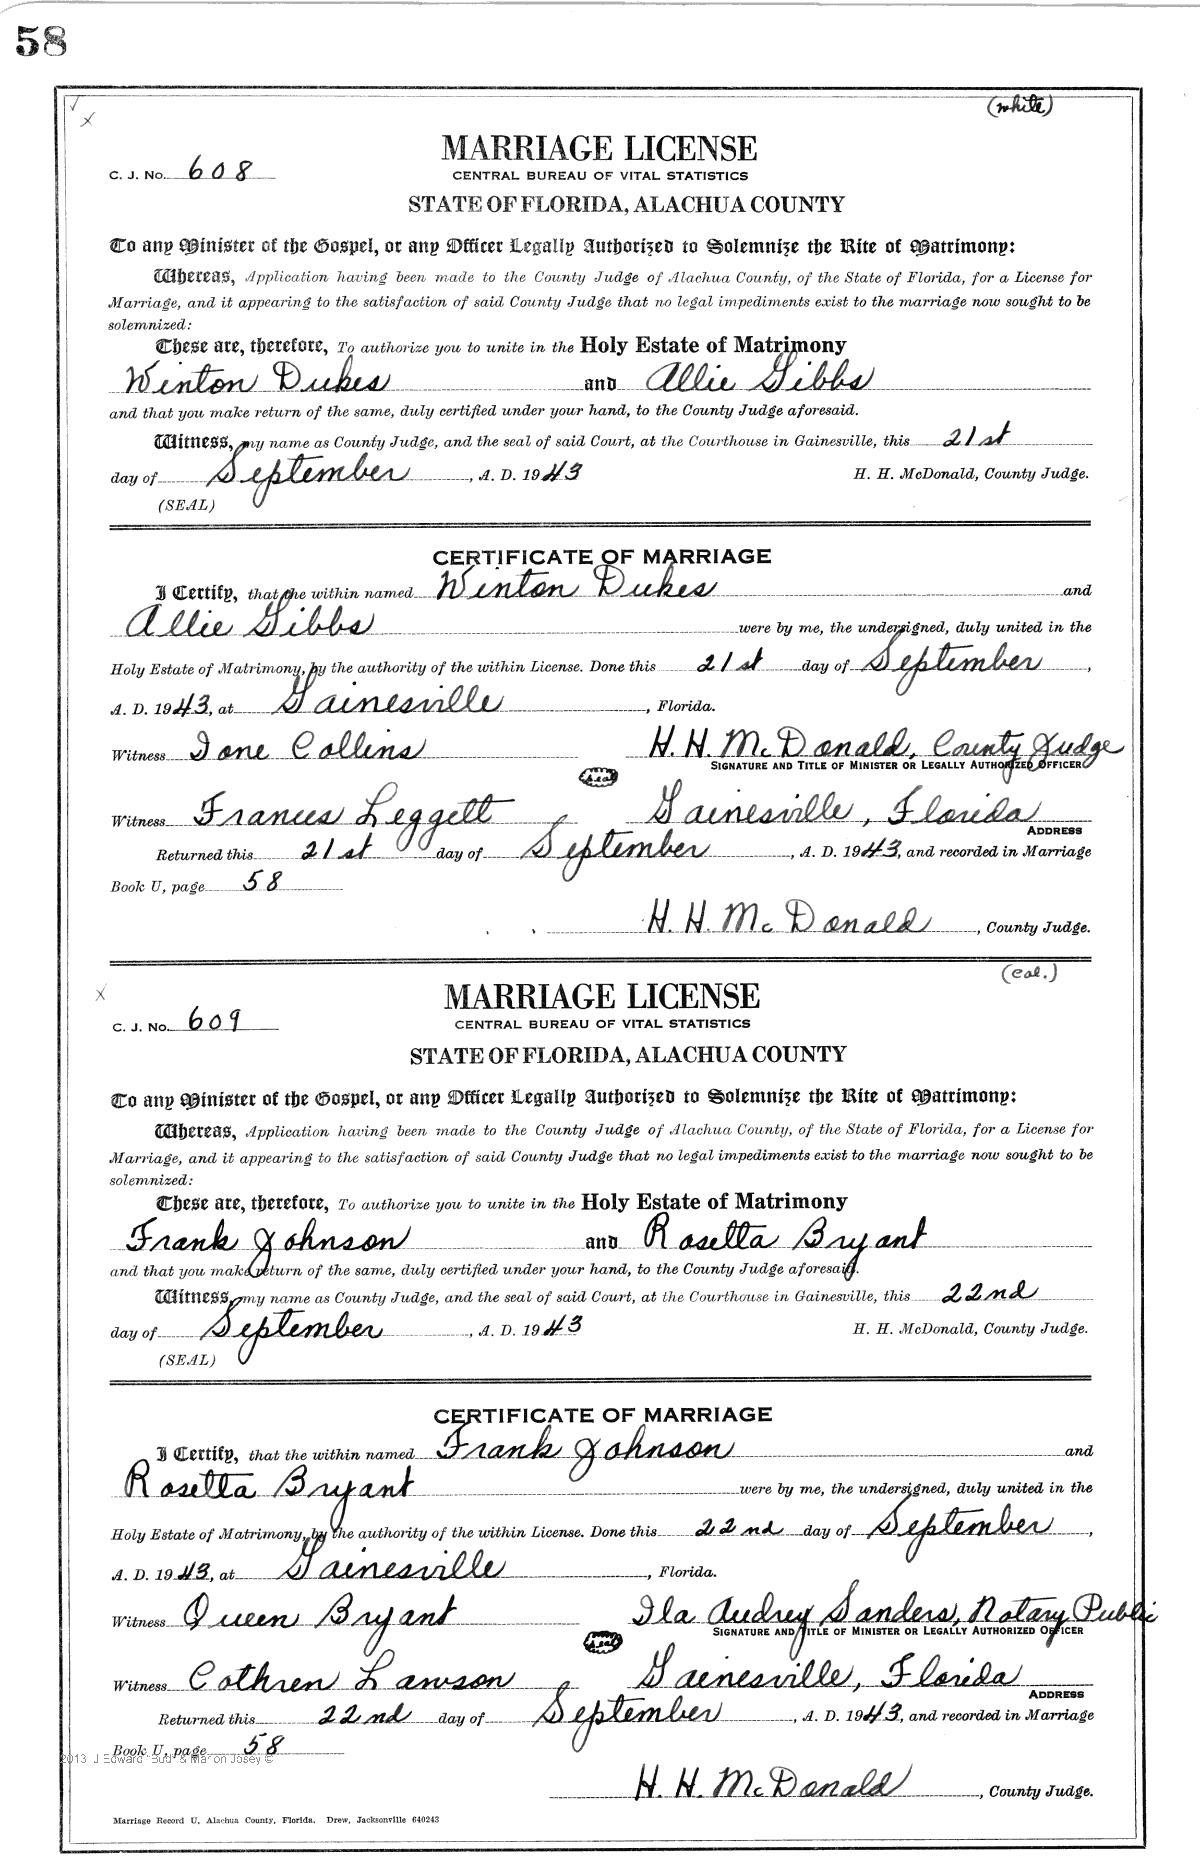 58
(white)
MARRIAGE LICENSE
C. J. No. 608
CENTRAL BUREAU OF VITAL STATISTICS
STATE OF FLORIDA, ALACHUA COUNTY
To any Minister of the Gospel, or any Officer Legally Authorized to Solemnize the Rite of Matrimony:
Whereas, Application having been made to the County Judge of Alachua County, of the State of Florida, for a License for
Marriage, and it appearing to the satisfaction of said County Judge that no legal impediments exist to the marriage now sought to be
solemnized:
These are, therefore, To authorize you to unite in the Holy Estate of Matrimony
Winton Dukes and Allie Gibbs
and that you make return of the same, duly certified under your hand, to the County Judge aforesaid.
Witness, my name as County Judge, and the seal of said Court, at the Courthouse in Gainesville, this 21st
day of September, A. D. 1943 H. H. McDonald, County Judge.
(SEAL)
CERTIFICATE OF MARRIAGE
I Certify, that the within named Winton Dukes and
Allie Gibbs were by me, the undersigned, duly united in the
Holy Estate of Matrimony, by the authority of the within License. Done this 21st day of September,
A. D. 1943, at Gainesville, Florida.
Witness Ione Collins H. H. McDonald, County Judge
SIGNATURE AND TITLE OF MINISTER OR LEGALLY AUTHORIZED OFFICER
Seal
Witness Frances Leggett Gainesville, Florida
ADDRESS
Returned this 21st day of September, A. D. 1943, and recorded in Marriage
Book U, page 58
H. H. McDonald, County Judge.
(col.)
MARRIAGE LICENSE
C. J. No. 609
CENTRAL BUREAU OF VITAL STATISTICS
STATE OF FLORIDA, ALACHUA COUNTY
To any Minister of the Gospel, or any Officer Legally Authorized to Solemnize the Rite of Matrimony:
Whereas, Application having been made to the County Judge of Alachua County, of the State of Florida, for a License for
Marriage, and it appearing to the satisfaction of said County Judge that no legal impediments exist to the marriage now sought to be
solemnized:
These are, therefore, To authorize you to unite in the Holy Estate of Matrimony
Frank Johnson and Rosetta Bryant
and that you make return of the same, duly certified under your hand, to the County Judge aforesaid.
Witness, my name as County Judge, and the seal of said Court, at the Courthouse in Gainesville, this 22nd
day of September, A. D. 1943 H. H. McDonald, County Judge.
(SEAL)
CERTIFICATE OF MARRIAGE
I Certify, that the within named Frank Johnson and
Rosetta Bryant were by me, the undersigned, duly united in the
Holy Estate of Matrimony, by the authority of the within License. Done this 22nd day of September,
A. D. 1943, at Gainesville, Florida.
Witness Queen Bryant Ila Audrey Sanders, Notary Public
SIGNATURE AND TITLE OF MINISTER OR LEGALLY AUTHORIZED OFFICER
Seal
Witness Cothren Lawson Gainesville, Florida
ADDRESS
Returned this 22nd day of September, A. D. 1943, and recorded in Marriage
Book U, page 58
2013 J Edward "Bud" & Marion Josey ©
H. H. McDonald, County Judge.
Marriage Record U, Alachua County, Florida. Drew, Jacksonville 640243